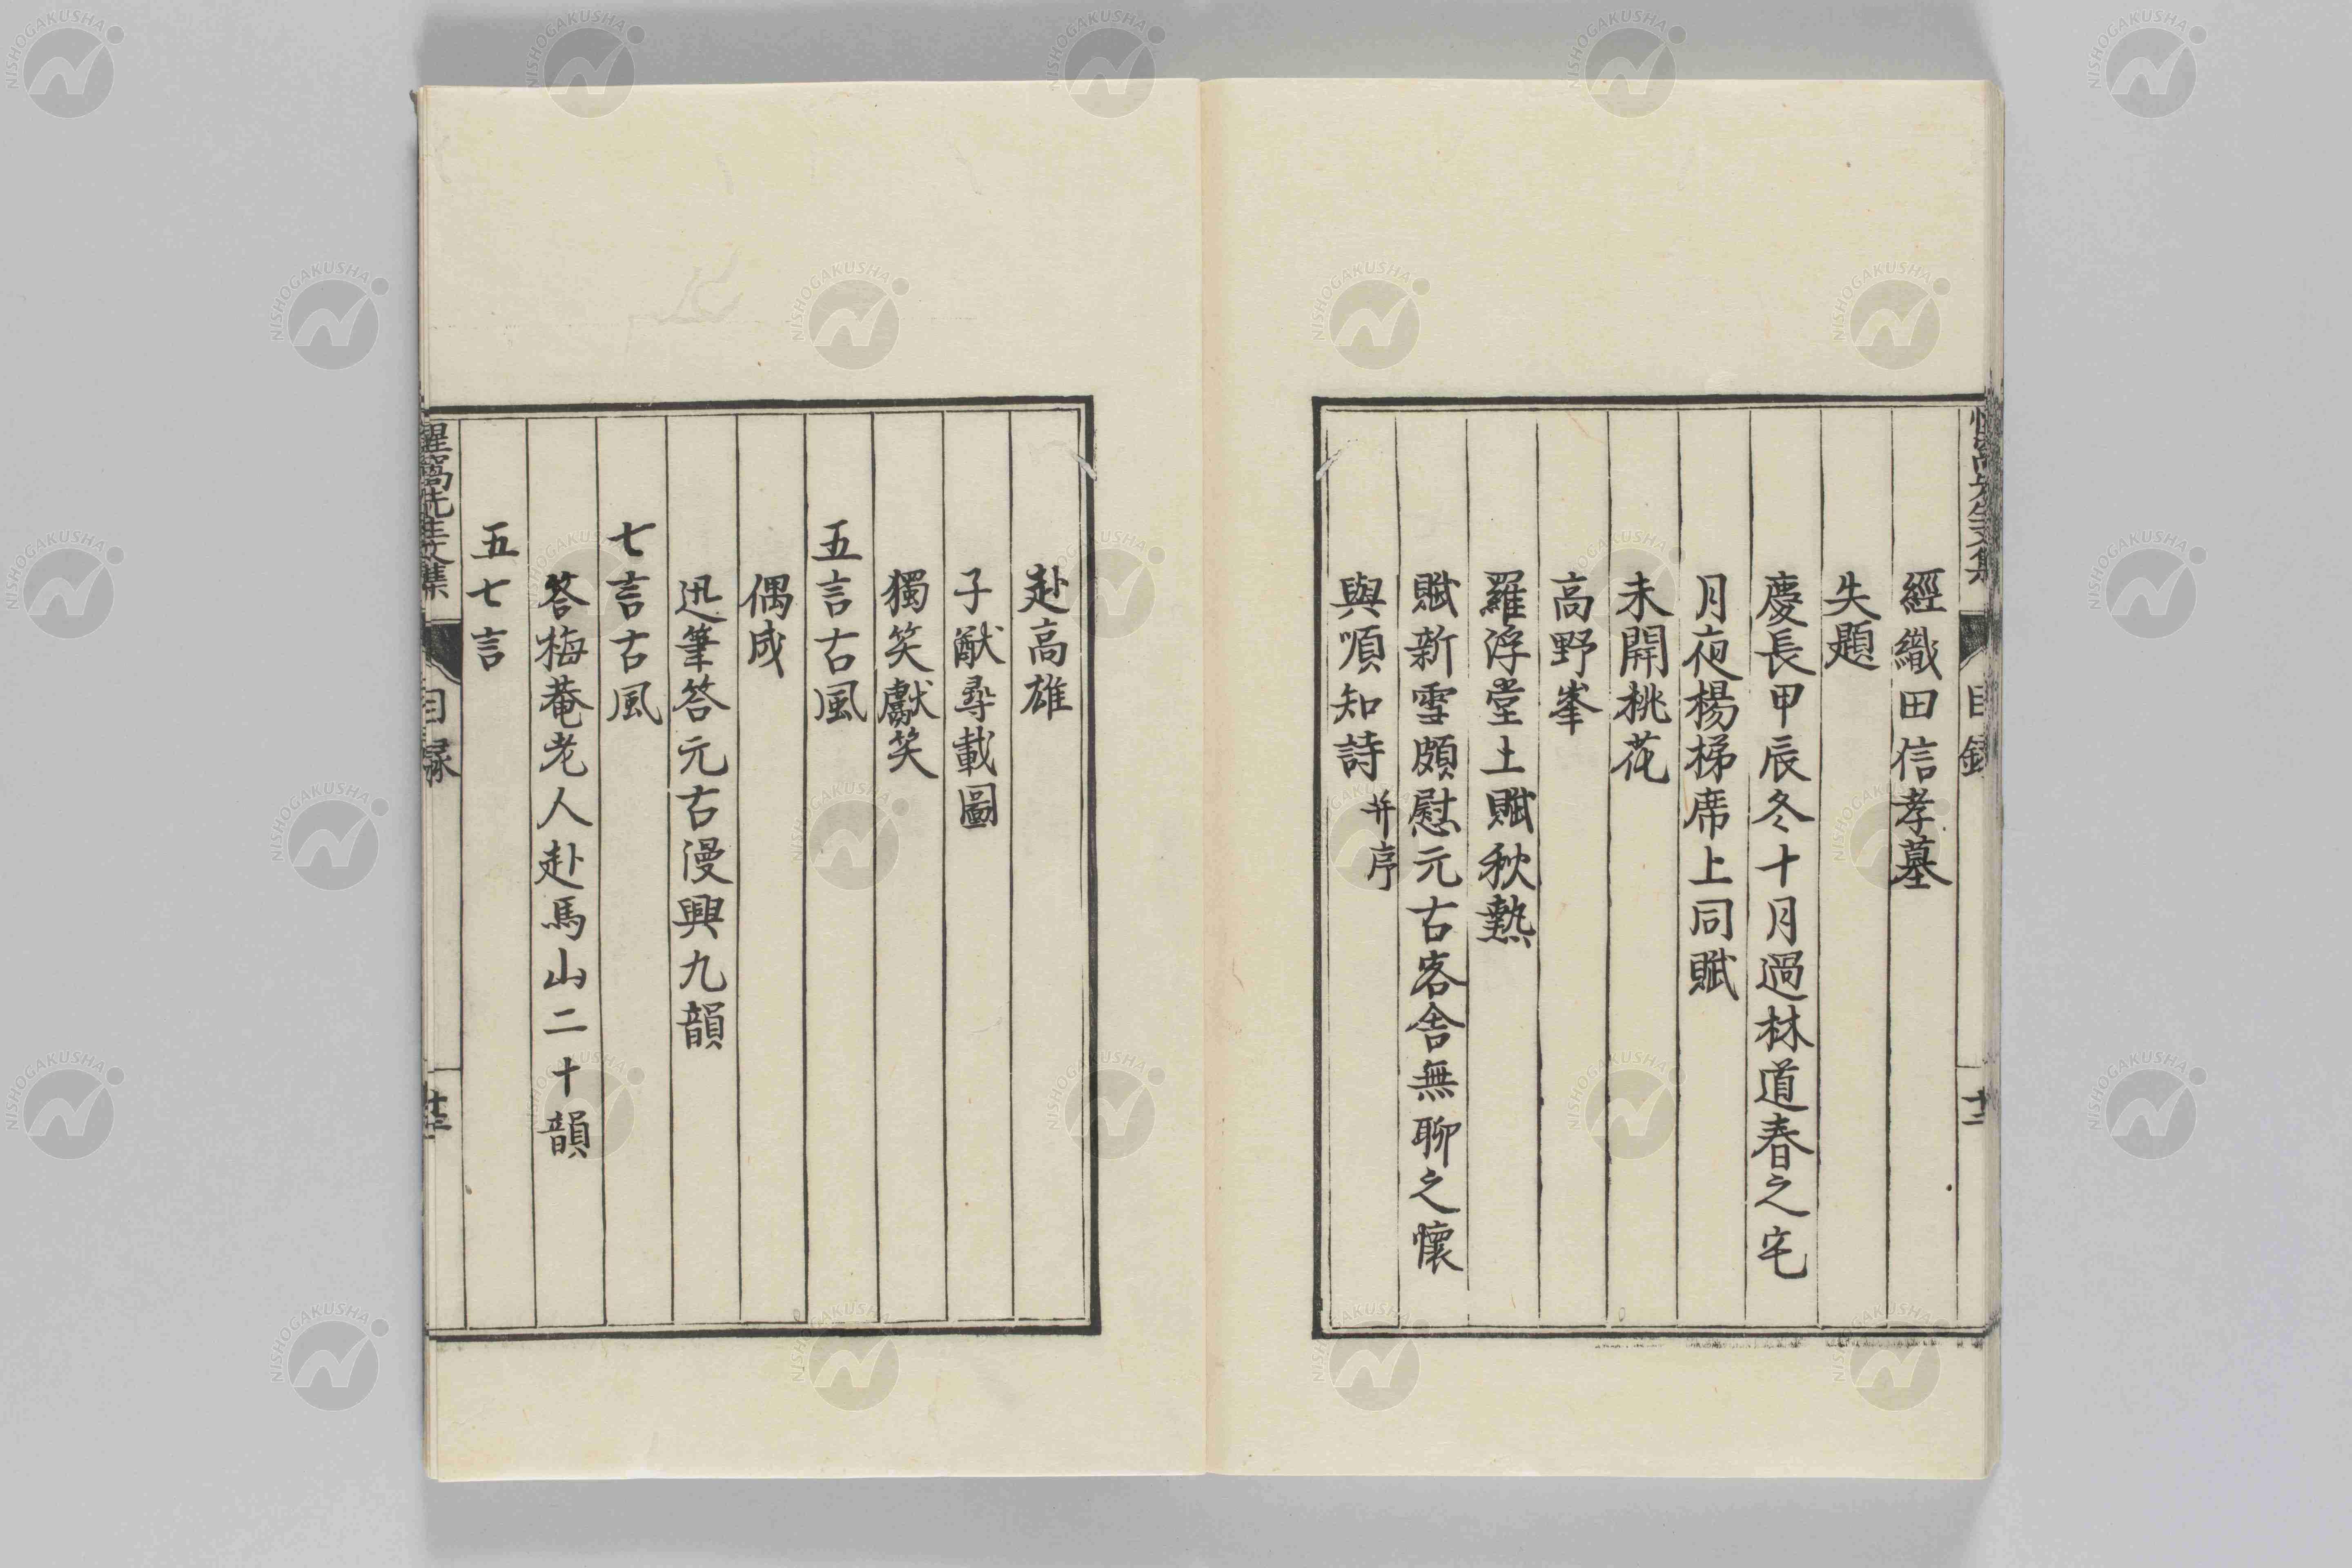 經織田信孝墓
失題
慶長甲辰冬十月過林道春之宅
月夜楊梯席上同賦
未開桃花
高野峯
羅浮堂上賦秋熱
賦新雪頗慰元古客舍無聊之懷
與順知詩 并序
赴高雄
子猷尋載圖
獨笑獻笑
五言古風
偶成
迅筆答元古漫興九韻
七言古風
答梅菴老人赴馬山二十韻
五七言
惺窩先生文集 目録
NISHOGAKUSHA